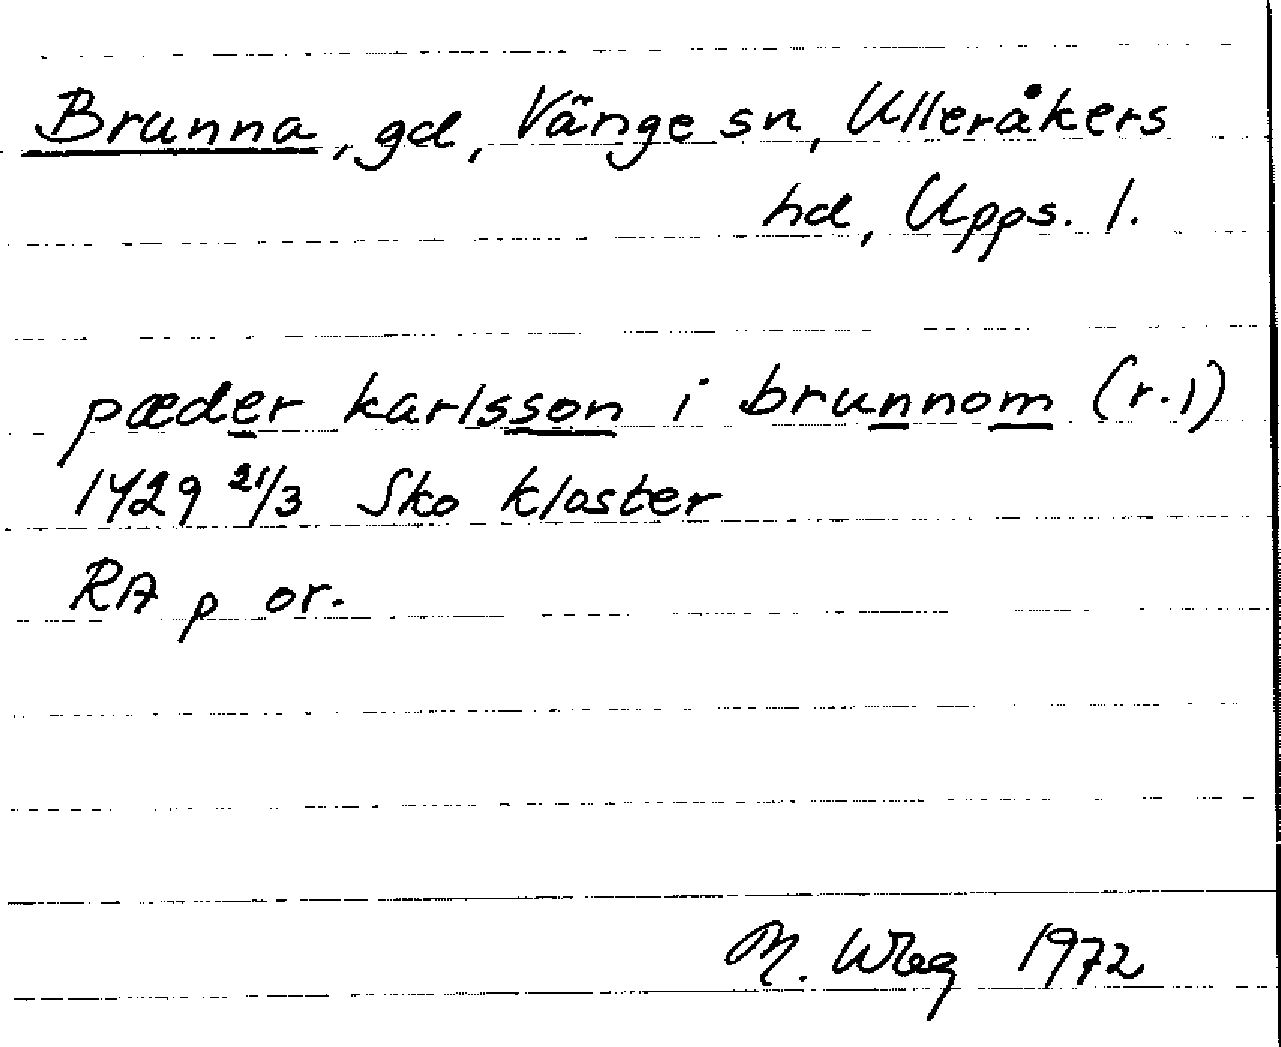 Brunna, gd, Vänge sn, Ulleråkers
hd, Upps. l.
pæder karlsson i brunnom (r.1)
1429 21/3 Sko kloster
RA p or.
M. Wbg 1972